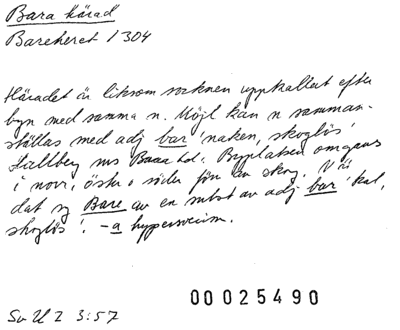 Bara härad
Bareheret 1304
Häradet är liksom socknen uppkallat efter
byn med samma n. Möjl kan n samman-
ställas med adj bar 'naken, skoglös'
Hallberg ms Bara hd: Byplatsen omgavs
i norr, öster o söder
dat sg Bare av en subst av adj bar 'kal,
skoglös'. -a hyperseism.
00025490
Sv U 2 3:57